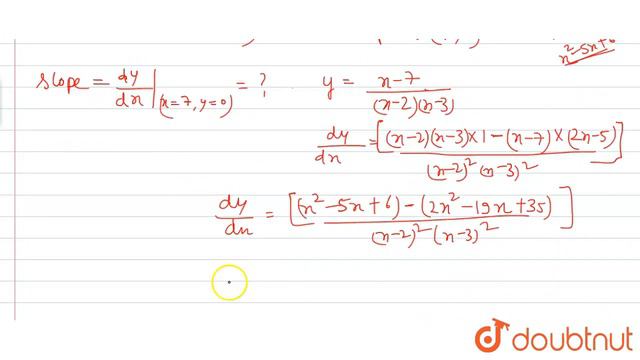 x²-5x+6
slope = dy/dx |(x=7, y=0) = ? y = x-7/(x-2)(x-3)
dy/dx = [(x-2)(x-3)×1-(x-7)×(2x-5)/(x-2)²(x-3)²]
dy/dx = [(x²-5x+6)-(2x²-19x+35)/(x-2)²(x-3)²]
doubtnut